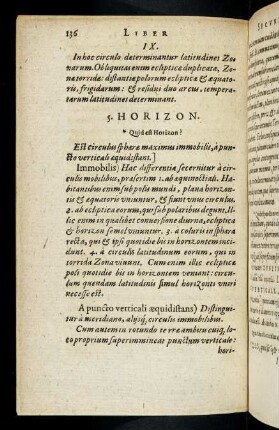 136 LIBER
IX.
In hoc circulo determinantur latitudines Zo-
narum. Obliquitas enim eclipticæ duplicata, Zo-
na torridæ: distantiæ polorum eclipticæ & æquato-
ris, frigidarum: & residui duo arcus, tempera-
tarum latitudines determinant.
5. HORIZON.
* Quid est Horizon?
Est circulus sphæræ maximus immobilis, à pun-
cto verticali æquidistans.]
Immobilis) Hac differentia secernitur à cir-
culis mobilibus, præsertim 1. ab æquinoctiali. Ha-
bitantibus enim sub polis mundi, plana horizon-
tis & æquatoris uniuntur, & fiunt unus circulus.
2. ab ecliptica eorum, qui sub polaribus degunt. Il-
lic enim in qualibet conversione diurna, ecliptica
& horizon semel uniuntur. 3. à coluris in sphæra
recta, qui & ipsi quotidie bis in horizontem inci-
dunt. 4. à circulis latitudinum eorum, qui in
torrida Zona vivunt. Cum enim illic eclipticæ
poli quotidie bis in horizontem veniant: circu-
lum quendam latitudinis simul horizonti uniri
necesse est.
A puncto verticali æquidistans) Distingui-
tur à meridiano, alijsq; circulis immobilibus.
Cum autem in rotundo terræ ambitu cuiq; lo-
co proprium supermineat punctum verticale:
hori-